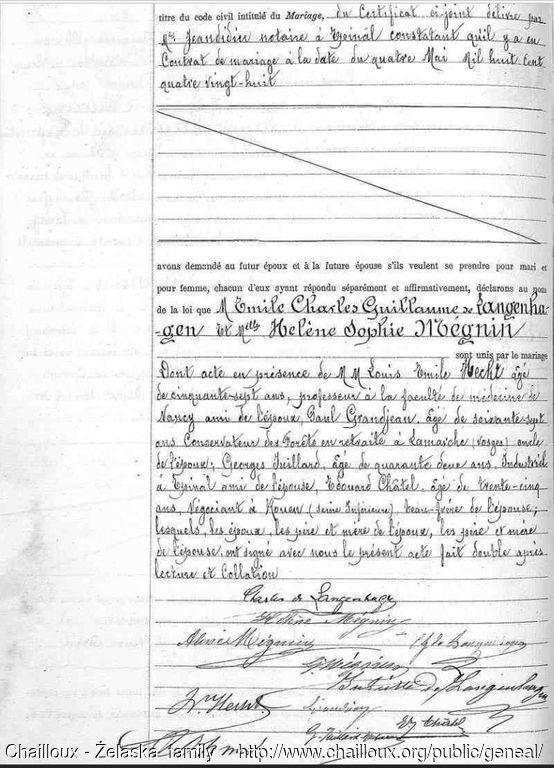 titre du code civil intitulé du Mariage, du Certificat ci-joint délivré par
Me Jeandidier notaire à Epinal constatant qu'il y a eu
Contrat de mariage à la date du quatre Mai Mil huit cent
quatre vingt-huit
avons demandé au futur époux et à la future épouse s'ils veulent se prendre pour mari et
pour femme, chacun d'eux ayant répondu séparément et affirmativement, déclarons au nom
de la loi que M Emile Charles Guillaume de Langenha-
-gen Et Melle Helène Sophie Mégnin
sont unis par le mariage
Dont acte en présence de M M Louis Emile Hecht âgé
de cinquante-sept ans, professeur à la faculté de médecine de
Nancy ami de l'époux, Paul Grandjean, âgé de soixante-sept
ans Conservateur des Forêts en retraite à Lamarche (Vosges) oncle
de l'époux; Georges Juillard, âgé de quarante deux ans, Industriel
à Epinal ami de l'épouse, Edouard Châtel, âgé de trente-cinq
ans, Négociant à Rouen (Seine Inférieure), beau-frère de l'épouse;
lesquels, les époux, les père et mère de l'époux, les père et mère
de l'épouse, ont signé avec nous le présent acte fait double après
lecture et Collation
Charles de Langenhagen
Hélène Mégnin
Mégnin
G Mégnin
de Langenhagen
Dr Hecht
Ed Châtel
Chailloux - Żelaska family - http://www.chailloux.org/public/geneal/